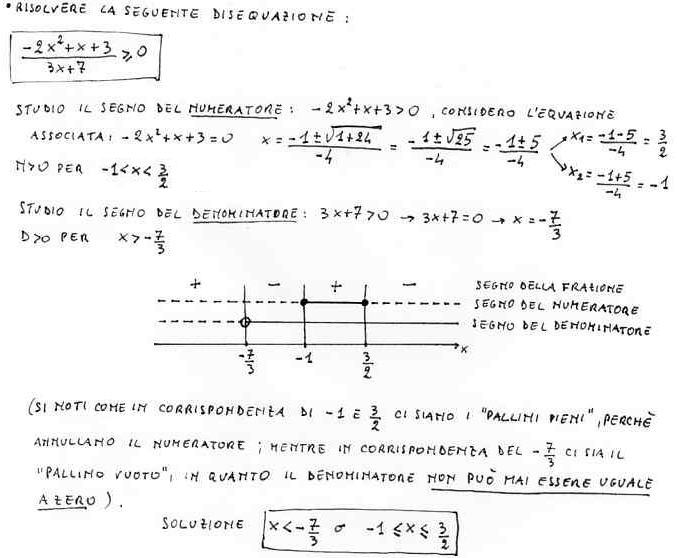 • RISOLVERE LA SEGUENTE DISEQUAZIONE :
(-2x²+x+3)/(3x+7) ⩾ 0
STUDIO IL SEGNO DEL NUMERATORE : -2x²+x+3>0 , CONSIDERO L'EQUAZIONE
ASSOCIATA : -2x²+x+3=0 x = (-1±√(1+24))/(-4) = (-1±√25)/(-4) = (-1±5)/(-4) x₁ = (-1-5)/(-4) = 3/2
x₂ = (-1+5)/(-4) = -1
N>0 PER -1<x<3/2
STUDIO IL SEGNO DEL DENOMINATORE : 3x+7>0 → 3x+7=0 → x = -7/3
D>0 PER x>-7/3
+ - + - SEGNO DELLA FRAZIONE
SEGNO DEL NUMERATORE
SEGNO DEL DENOMINATORE
x
-7/3 -1 3/2
(SI NOTI COME IN CORRISPONDENZA DI -1 E 3/2 CI SIANO I "PALLINI PIENI", PERCHÈ
ANNULLANO IL NUMERATORE ; MENTRE IN CORRISPONDENZA DEL -7/3 CI SIA IL
"PALLINO VUOTO", IN QUANTO IL DENOMINATORE NON PUÒ MAI ESSERE UGUALE
A ZERO ) .
SOLUZIONE x<-7/3 o -1 ⩽ x ⩽ 3/2